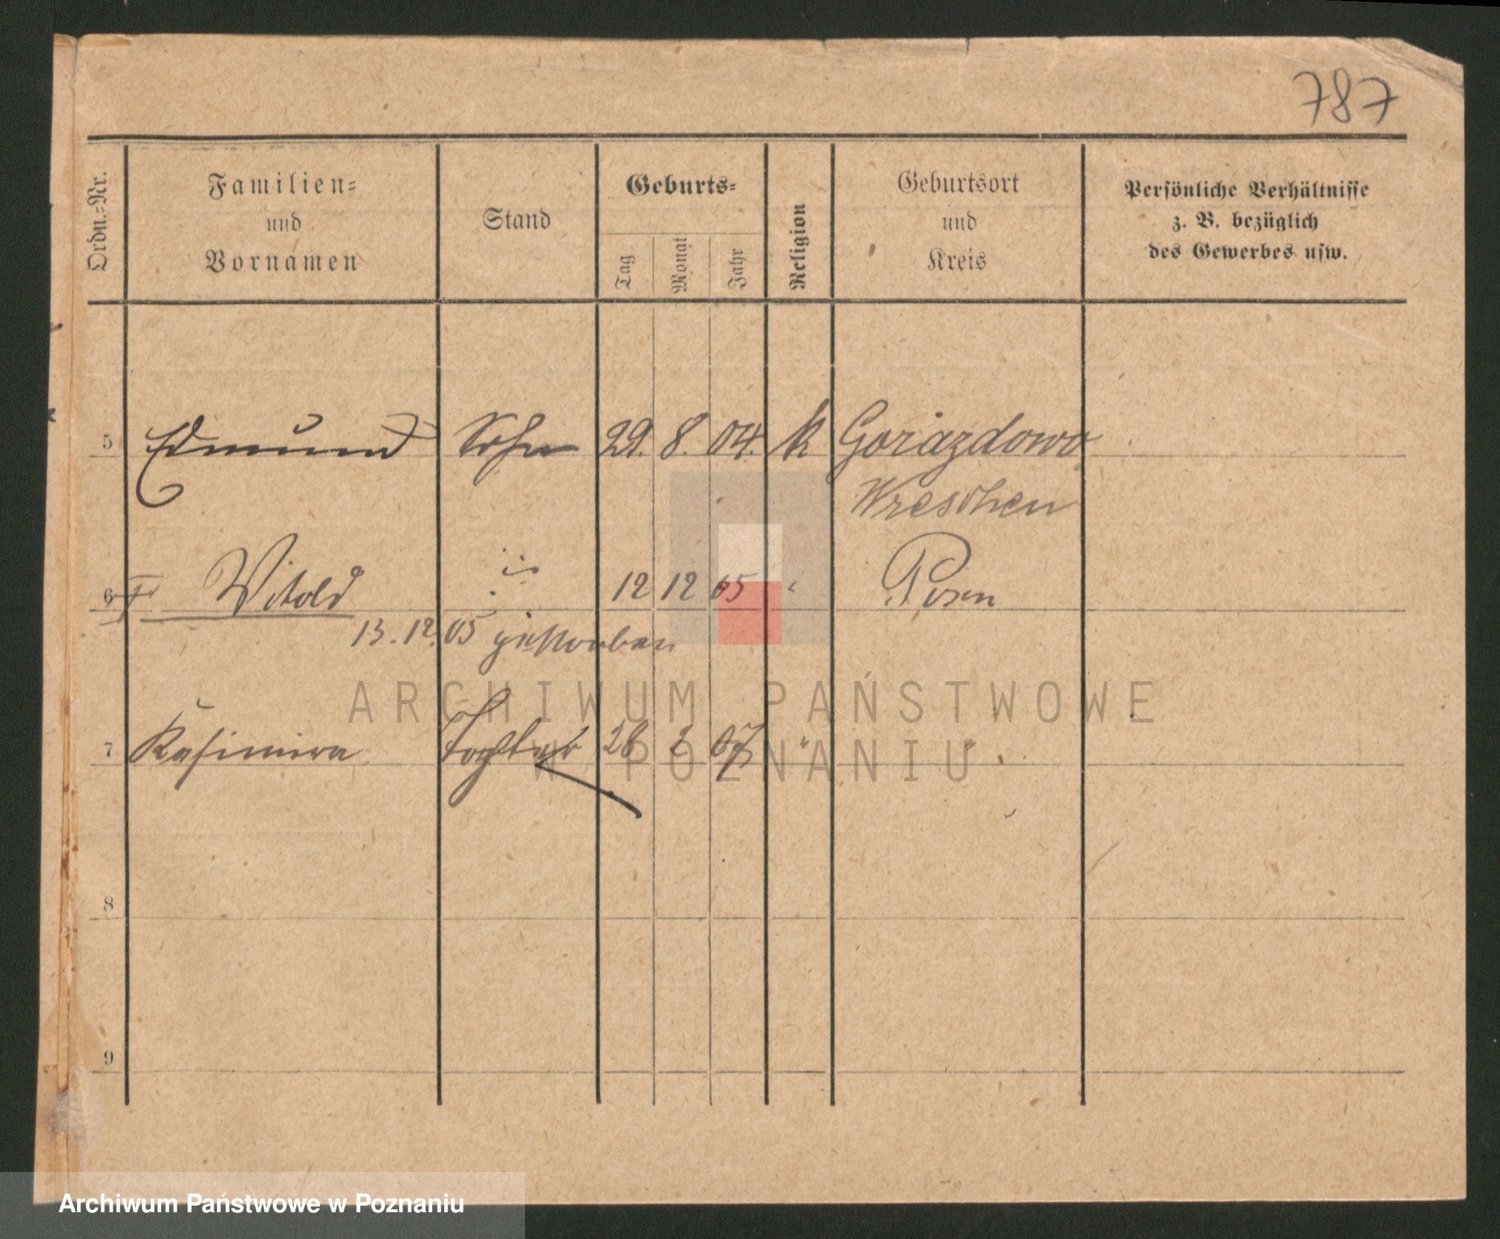 787
Ordn.=Nr.
Familien=
und
Vornamen
Stand
Geburts=
Tag
Monat
Jahr
Religion
Geburtsort
und
Kreis
Persönliche Verhältnisse
z. B. bezüglich
des Gewerbes usw.
5 Edmund Sohn 29. 8. 04. k Gorazdowo
Wreschen
6 Witold " 12 12 05 " Posen
13.12.05 gestorben
7 Kasimira Tochter 26 2 07 " "
8
9
ARCHIWUM PAŃSTWOWE
W POZNANIU
Archiwum Państwowe w Poznaniu